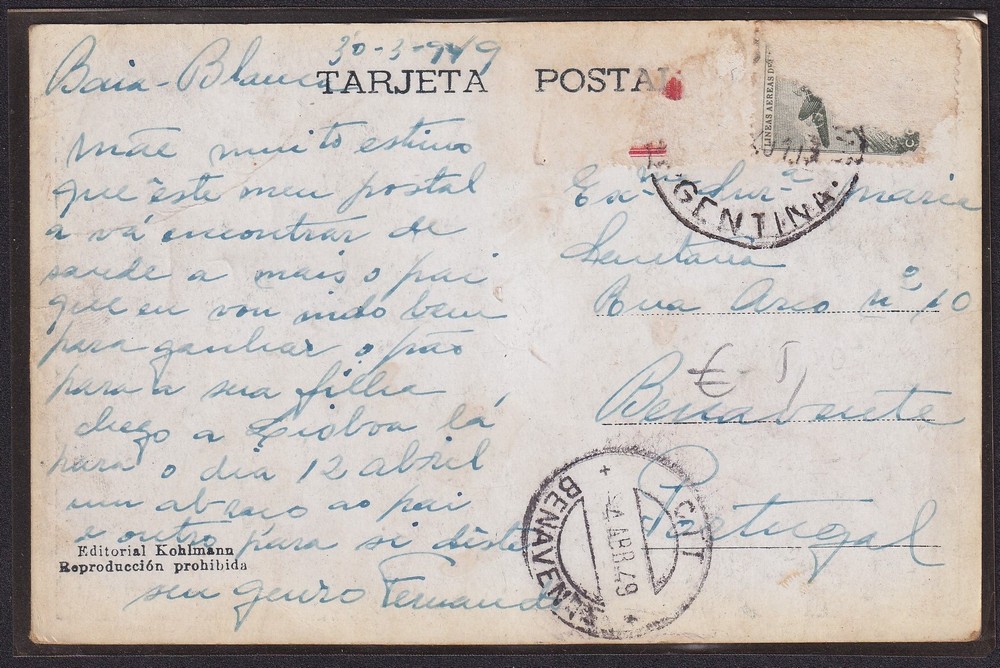 Baia-Blanca 30-3-949
TARJETA POSTAL
Mãe muito estimo
que este meu postal
a vá encontrar de
saude a mais o pai
que eu vou indo bem
para ganhar o pão
para a sua filha
chego a Lisboa lá
para o dia 12 abril
um abraço ao pai
e outro para si diste
seu genro Fernando
Editorial Kohlmann
Reproducción prohibida
LINEAS AEREAS DEL
GENTINA
Exma Snra Maria
Rua Arco nº 10
Benavente
Portugal
€ 5,
CTT
BENAVENTE
ABR.49